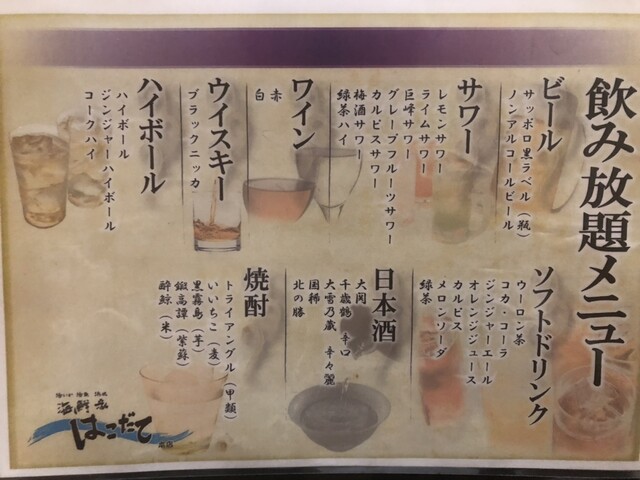 飲み放題メニュー
ビール
サッポロ黒ラベル（瓶）
ノンアルコールビール
サワー
レモンサワー
ライムサワー
巨峰サワー
グレープフルーツサワー
カルピスサワー
梅酒サワー
緑茶ハイ
ワイン
赤
白
ウイスキー
ブラックニッカ
ハイボール
ハイボール
ジンジャーハイボール
コークハイ
ソフトドリンク
ウーロン茶
コカ・コーラ
ジンジャーエール
オレンジジュース
カルピス
メロンソーダ
緑茶
日本酒
大関
千歳鶴 辛口
大雪乃蔵 辛々麗
国稀
北の勝
焼酎
トライアングル（甲類）
いいちこ（麦）
黒霧島（芋）
鍛高譚（紫蘇）
酔鯨（米）
はこだて